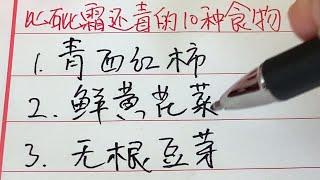 比砒霜还毒的10种食物
1. 青西红柿
2. 鲜黄花菜
3. 无根豆芽